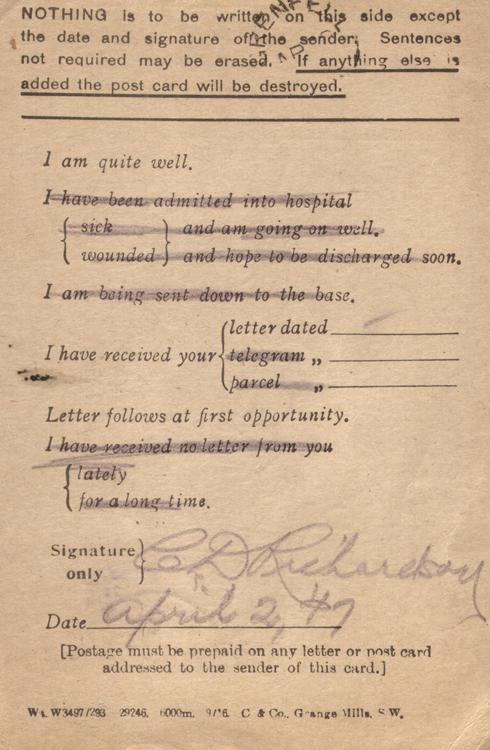 NOTHING is to be written on this side except
the date and signature of the sender. Sentences
not required may be erased. If anything else is
added the post card will be destroyed.
I am quite well.
I have been admitted into hospital
sick and am going on well.
wounded and hope to be discharged soon.
I am being sent down to the base.
letter dated
I have received your telegram „
parcel „
Letter follows at first opportunity.
I have received no letter from you
lately
for a long time.
Signature only C D Richardson
Date April 2, 17
[Postage must be prepaid on any letter or post card
addressed to the sender of this card.]
Wt. W3497/293 29246. 6000m. 9/16. C & Co., Grange Mills, S.W.